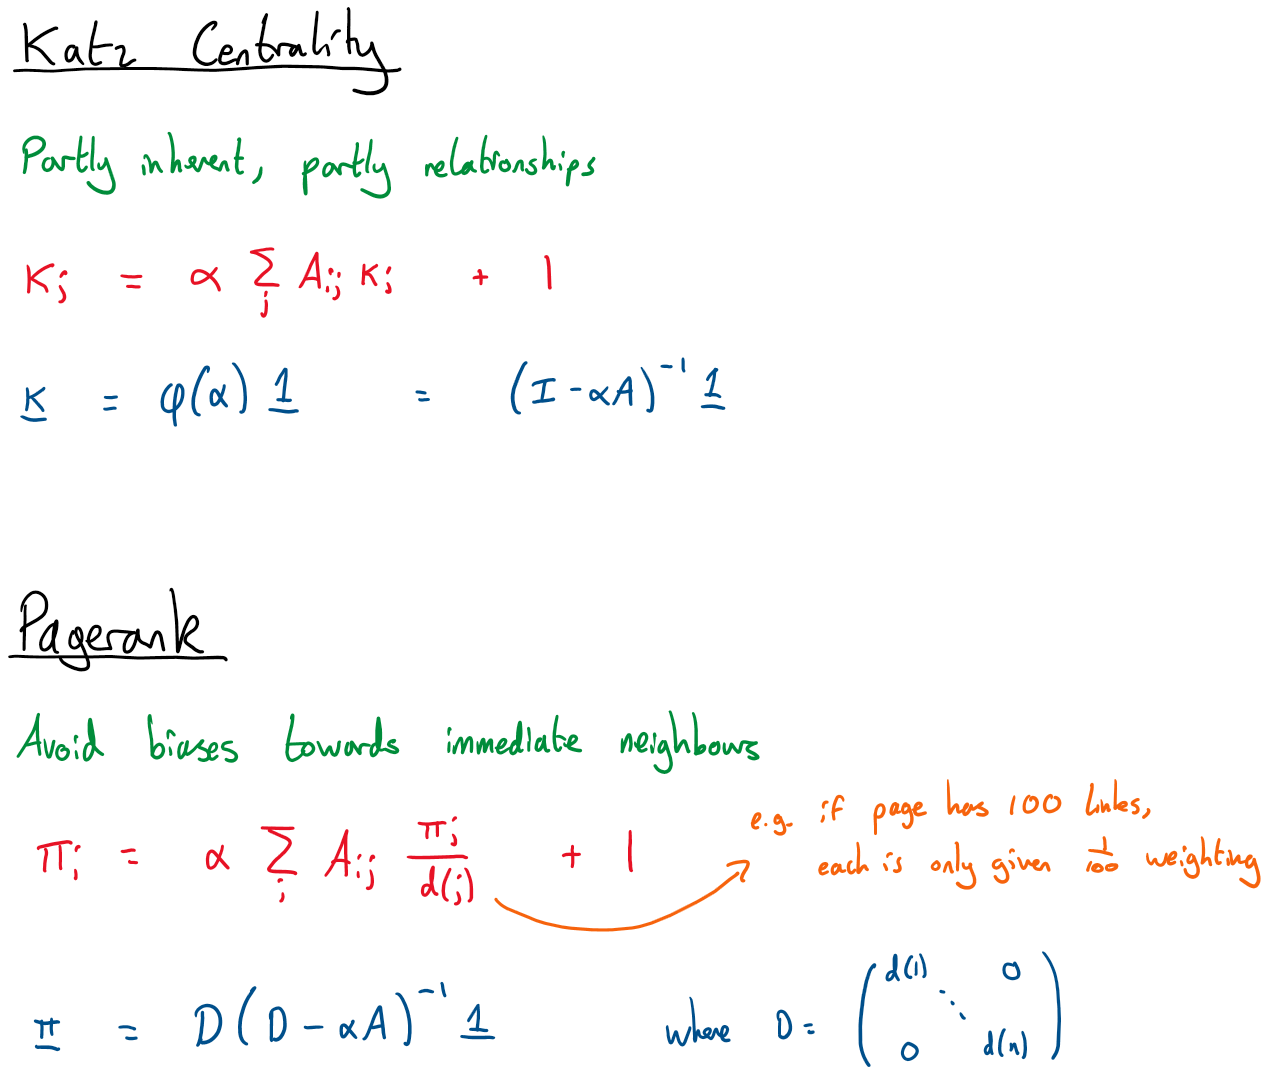 Katz Centrality
Partly inherent, partly relationships
κ_j = α Σ_j A_ij κ_j + 1
κ = φ(α) 1 = (I - αA)^-1 1
Pagerank
Avoid biases towards immediate neighbours
π_i = α Σ_j A_ij π_j / d(j) + 1
e.g. if page has 100 links,
each is only given 1/100 weighting
π = D(D - αA)^-1 1 where D = ( d(1) 0
⋱
0 d(n) )